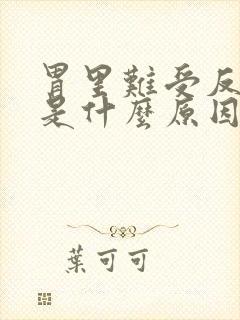 胃里難受反
是什麼原因
葉可可